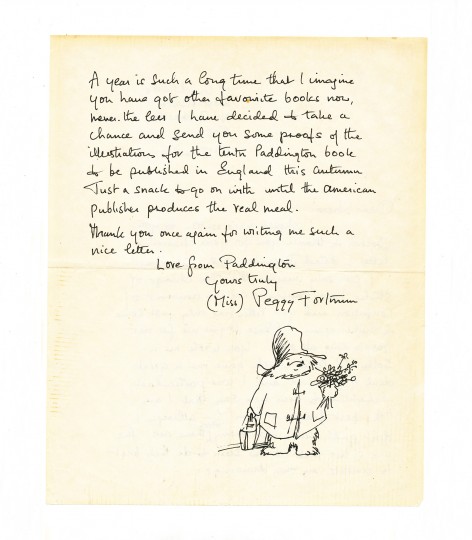 A year is such a long time that I imagine
you have got other favourite books now,
never.the less I have decided to take a
chance and send you some proofs of the
illustrations for the tenth Paddington book
to be published in England this autumn
Just a snack to go on with until the American
publisher produces the real meal.
Thank you once again for writing me such a
nice letter.
Love from Paddington
Yours truly
(Miss) Peggy Fortnum